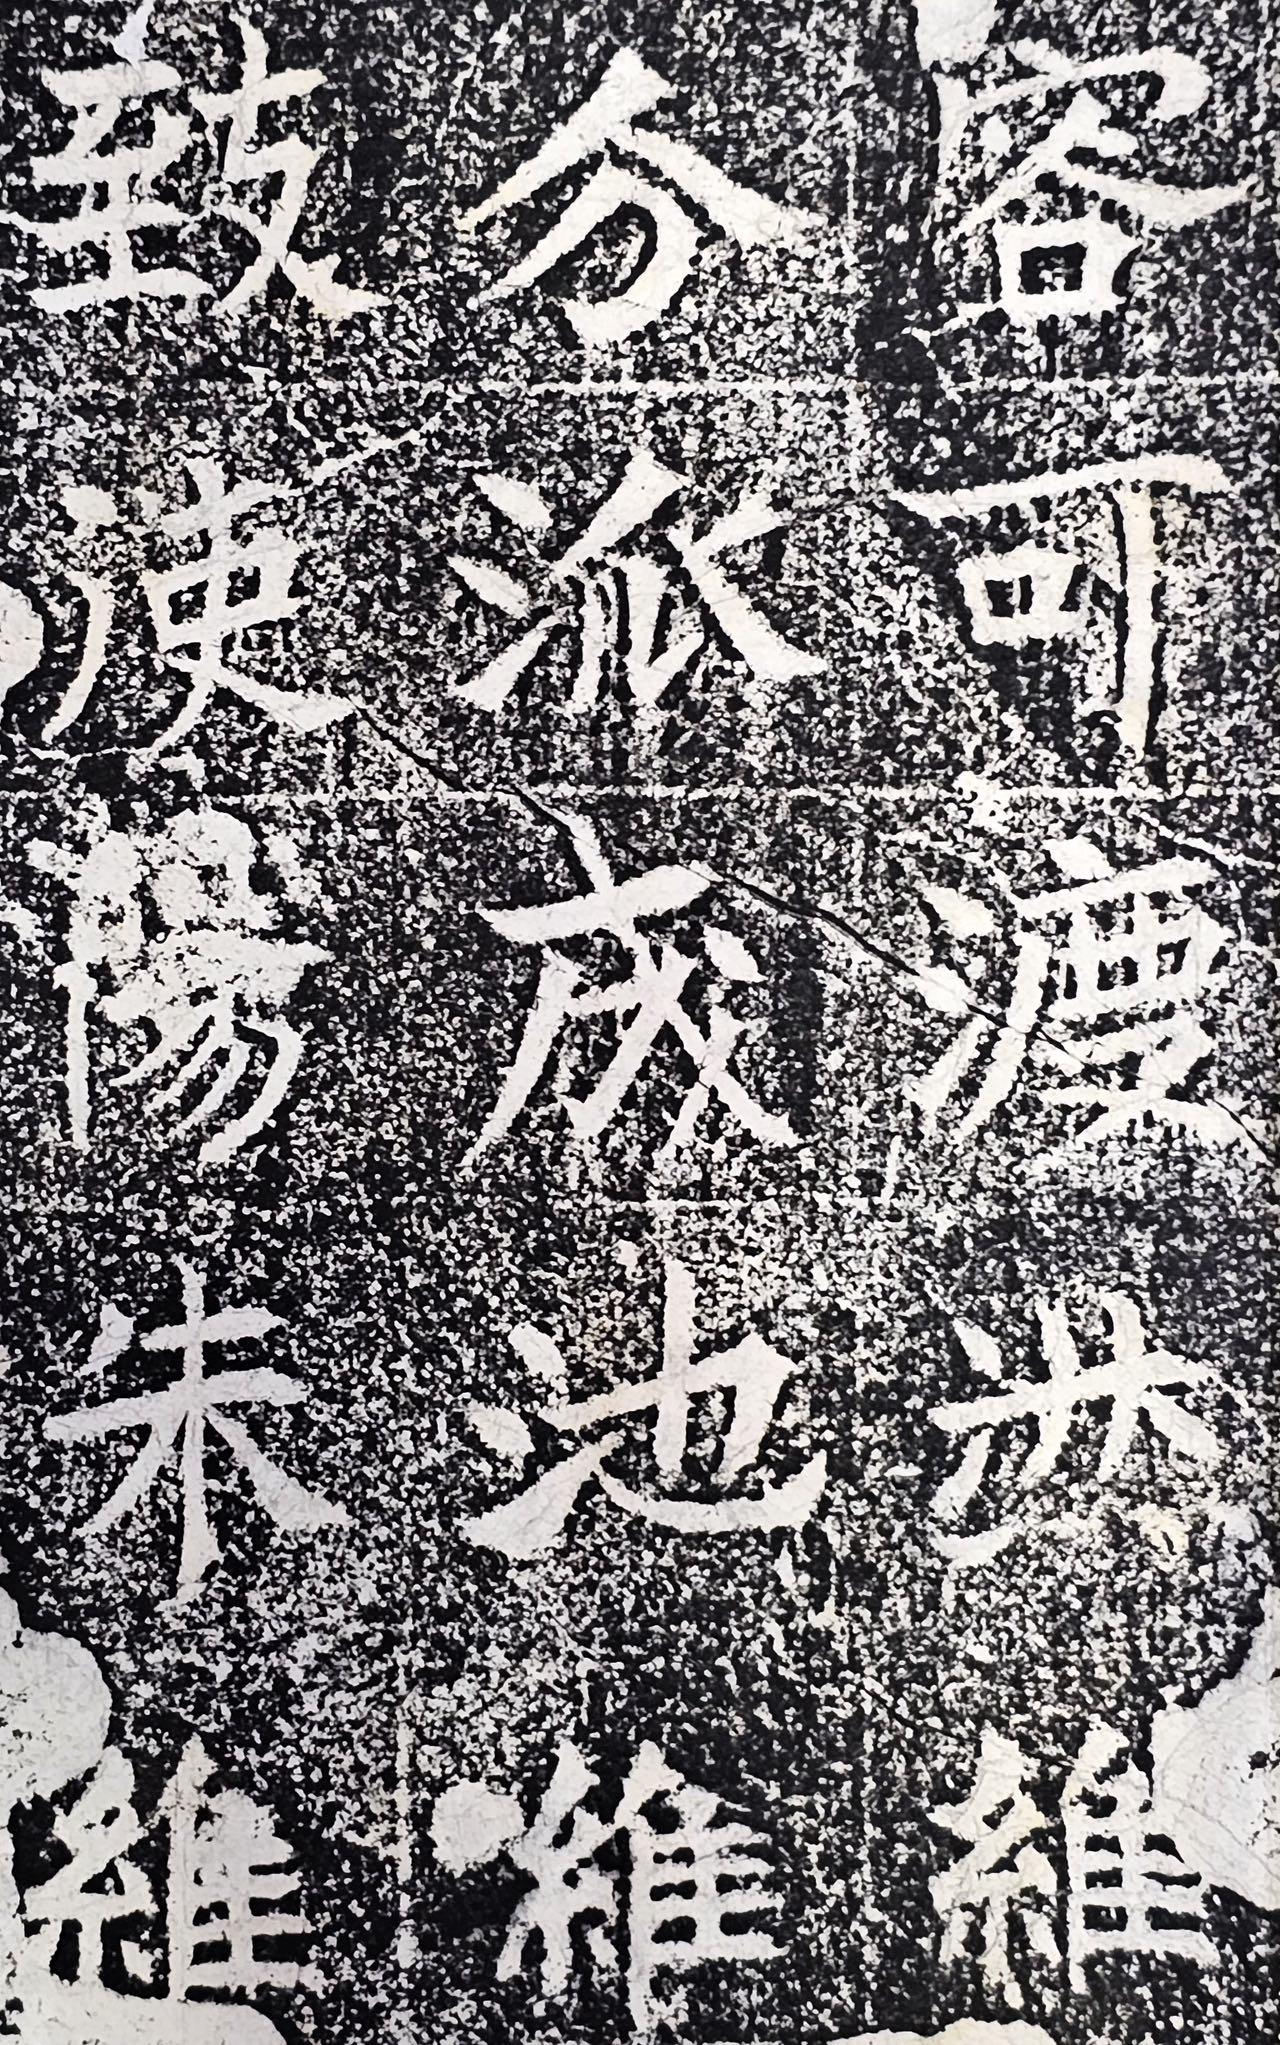 容可渡迷維
分派成池維
致使陽朱維